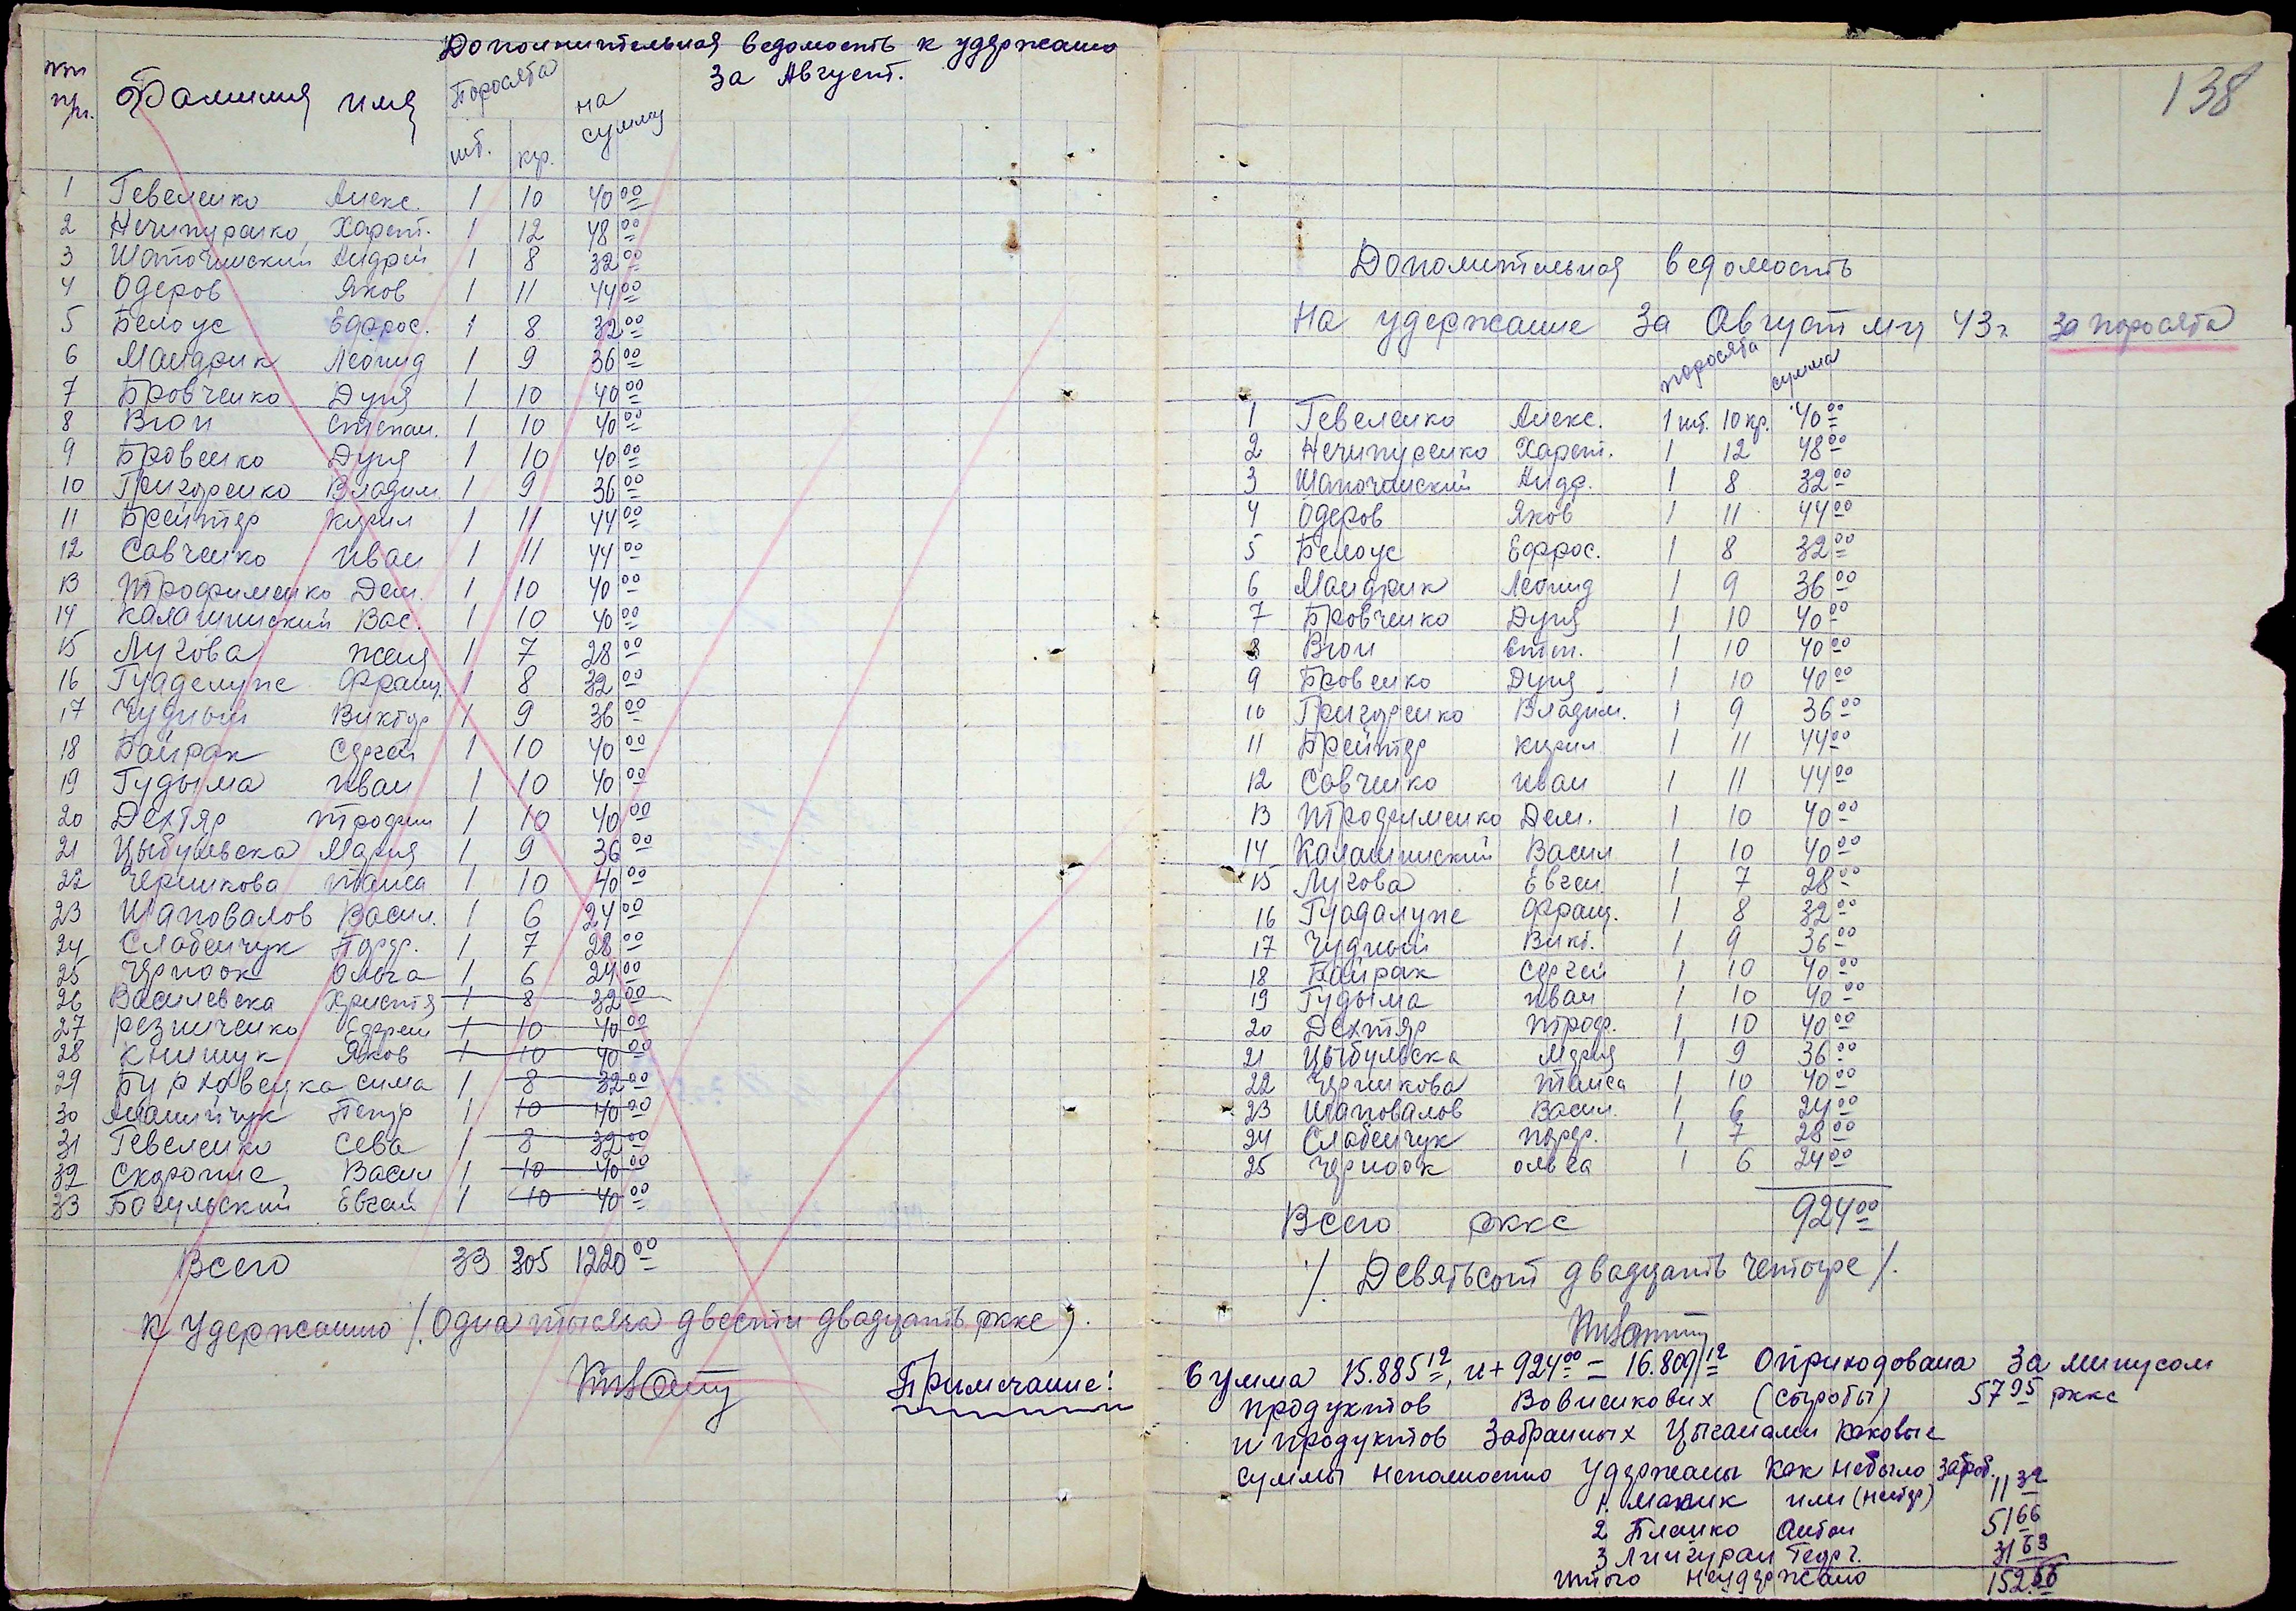 Дополнительная ведомость к удержанию
За Август.
№№ п/п. Фамилия имя Поросята на сумму
шт. кгр.
1 Гевеленко Алекс. 1 10 40 00
2 Нечипуренко Харет. 1 12 48 00
3 Шапочинский Андрей 1 8 32 00
4 Одеров Яков 1 11 44 00
5 Белоус Ефрос. 1 8 32 00
6 Мандрик Леонид 1 9 36 00
7 Бровченко Дуня 1 10 40 00
8 Вюн Степан. 1 10 40 00
9 Бровенко Дуня 1 10 40 00
10 Григоренко Владим 1 9 36 00
11 Брейтер Кирил 1 11 44 00
12 Савченко Иван 1 11 44 00
13 Трофименко Дем. 1 10 40 00
14 Калашинский Вас. 1 10 40 00
15 Лугова Женя 1 7 28 00
16 Гуаделупе Франц. 1 8 32 00
17 Чудный Виктор 1 9 36 00
18 Байрак Сергей 1 10 40 00
19 Гудыма Иван 1 10 40 00
20 Дехтяр Трофим 1 10 40 00
21 Цыбульска Мария 1 9 36 00
22 Черникова Таиса 1 10 40 00
23 Шаповалов Васил. 1 6 24 00
24 Слабенчук Порфр. 1 7 28 00
25 Черноок Ольга 1 6 24 00
26 Василевска Христя 1 8 32 00
27 Резниченко Ефрем 1 10 40 00
28 Книшук Яков 1 10 40 00
29 Бурховецка Сима 1 8 32 00
30 Ананийчук Петр 1 10 40 00
31 Гевеленко Сева 1 8 32 00
32 Скоропис Васил 1 10 40 00
33 Богульский Евген 1 10 40 00
Всего 33 305 1220 00
К удержанию /. Одна тысяча двести двадцать рккс).
Примечание:
138
Дополнительная ведомость
На удержание За Август м-ц 43 г. за поросята
поросята сумма
1 Гевеленко Алекс. 1 шт. 10 кр. 40 00
2 Нечипуренко Харет. 1 12 48 00
3 Шапочинский Андр. 1 8 32 00
4 Одеров Яков 1 11 44 00
5 Белоус Ефрос. 1 8 32 00
6 Мандрик Леонид 1 9 36 00
7 Бровченко Дуня 1 10 40 00
8 Вюн Степ. 1 10 40 00
9 Бровенко Дуня 1 10 40 00
10 Григоренко Владим. 1 9 36 00
11 Брейтер Кирил 1 11 44 00
12 Савченко Иван 1 11 44 00
13 Трофименко Дем. 1 10 40 00
14 Калашинский Васил 1 10 40 00
15 Лугова Евген. 1 7 28 00
16 Гуадалупе Франц. 1 8 32 00
17 Чудный Викт. 1 9 36 00
18 Байрак Сергей 1 10 40 00
19 Гудыма Иван 1 10 40 00
20 Дехтяр Троф. 1 10 40 00
21 Цыбульска Мария 1 9 36 00
22 Черникова Таиса 1 10 40 00
23 Шаповалов Васил. 1 6 24 00
24 Слабенчук Порфр. 1 7 28 00
25 Черноок Ольга 1 6 24 00
Всего рккс 924 00
/. Девятьсот двадцать четыре /.
Сумма 15.885 12, и + 924 00 = 16.809 12 Оприходована За минусом
продуктов Вовненкових (Сыробы) 57 95 рккс
и продуктов Забранных Цыганами каковые
суммы неполностю Удержаны Как небыло зароб.
1. Маник или (Нестр) 11 32
2 Планко Антон 51 66
3 Лингуран Георг. 31 63
Итого Неудержано 152.56